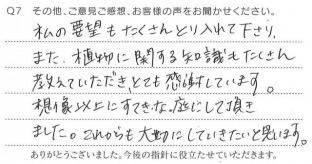 Q7 その他、ご意見ご感想、お客様の声をお聞かせください。
私の要望もたくさんとり入れて下さり、
また、植物に関する知識もたくさん
教えていただき、とても感謝しています。
想像以上にすてきな庭にして頂き
ました。これからも大切にしていきたいと思います。
ありがとうございました。今後の指針に役立たせていただきます。